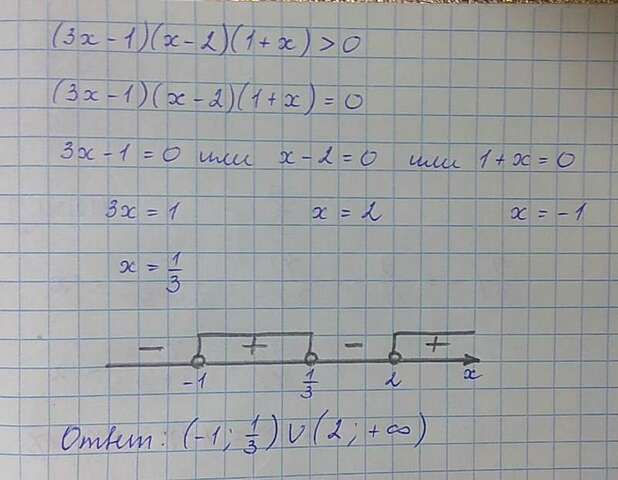 (3x - 1)(x - 2)(1 + x) > 0
(3x - 1)(x - 2)(1 + x) = 0
3x - 1 = 0 или x - 2 = 0 или 1 + x = 0
3x = 1 x = 2 x = -1
x = 1/3
− + − +
-1 1/3 2 x
Ответ: (-1; 1/3) ∪ (2; +∞)